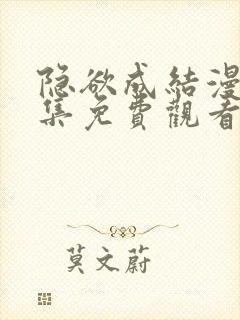 隐欲成结漫
集免費觀看
莫文蔚